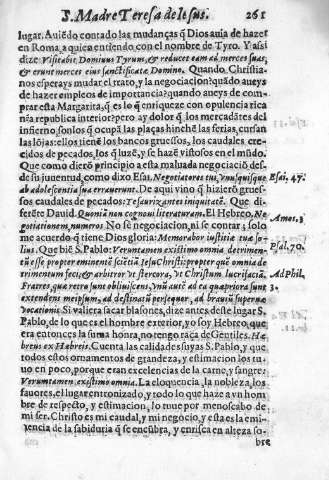 S. Madre Teresa de Iesus. 261
lugar. Auiēdo contado las mudanças q̄ Dios auia de hazer
en Roma, a quien entiendo, con el nombre de Tyro. Y assi
dize Visitabit Dominus Tyrum, & reducet eam ad merces suas,
& erunt merces eius sanctificatæ Domino. Quando, Christia-
nos esperays mudar el trato, y la negociacion? quādo aueys
de hazer empleos de importancia? quando aueys de com-
prar esta Margarita, q̄ es lo q̄ enriquece con opulencia rica
nia republica interior? pero ay dolor q̄ los mercadātes del
infierno, son los q̄ ocupā las plaças hinchē las ferias, cursan
las lōjas: ellos tienē los bancos gruessos, los caudales cre-
cidos de pecados, los q̄ luzē, y se hazē vistosos en el mūdo.
Que como dierō principio a esta maluada negociaciō des-
de su juventud, como dixo Esai. Negotiatores tui, vnusquisque
ab adolescentia sua errauerunt. De aqui vino q̄ hizierō grues-
sos caudales de pecados: Tesaurizantes iniquitatē. Que di-
ferēte Dauid. Quoniā non cognoui literaturam. El Hebreo, Ne
gotiationem, numeros. No se negociacion, ni se contar; solo
me acuerdo q̄ tiene Dios gloria: Memorabor iustitiæ tuæ so-
lius. Que biē S. Pablo: Veruntamen existimo omnia detrimen-
tū esse propter eminentē sciētiā Iesu Christi: propter quē omnia de
trimentum feci, & arbitror vt stercora, vt Christum lucrifaciā.
Fratres, quæ retro sunt obliuiscens, vnū autē ad ea quæ priora sunt
extendens meipsum, ad destinatū persequor, ad brauiū supernæ
vocationis Si valiera sacar blasones, dize antes deste lugar S.
Pablo, de lo que es el hombre exterior, yo soy Hebreo, que
era entonces la suma honra, no tengo raça de Gentiles. Ha
breus ex Habreis. Cuenta las calidades suyas S. Pablo, y que
todos estos ornamentos de grandeza, y estimacion los tu
uo en poco, porque eran excelencias de la carne, y sangre:
Veruntamen existimo omnia. La eloquencia, la nobleza, los
fauores, el lugar entronizado, y todo lo que haze a vn hom
bre de respecto, y estimacion, lo tuue por menoscabo de
mi ser. Christo es mi caudal, y mi negocio, y esta es la emi-
nencia de la sabiduria q̄ se encūbra, y enrisca en alteza so-
bre
Esai. 47.
Amos. 3
Psal. 70.
Ad Phil.
3.